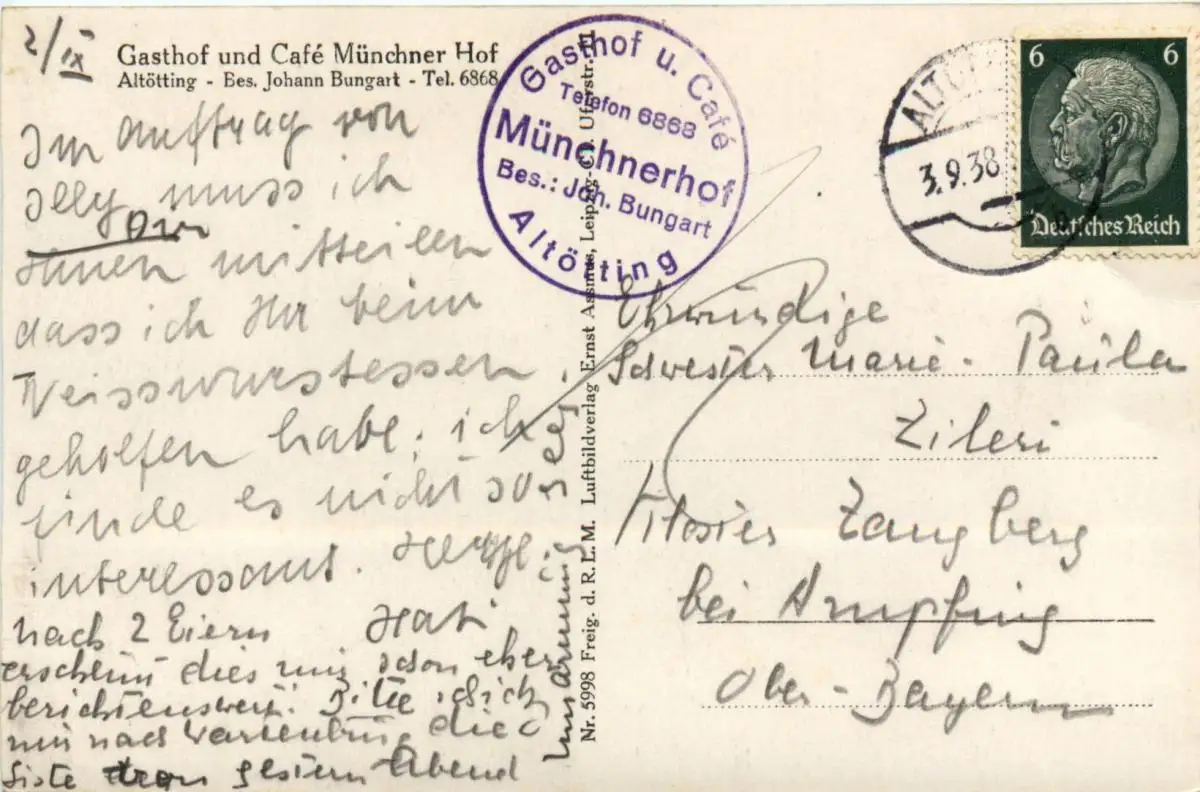 2/IX
Gasthof und Café Münchner Hof
Altötting - Bes. Johann Bungart - Tel. 6868
Im Auftrag von
muss ich
Ihnen mitteilen
dass ich Ihr beim
Weisswurstessen
geholfen habe, ich
finde es nicht so
interessant.
nach 2 Eiern
erscheint dies mir schon eher
berichtenswert. Bitte schick
mir nach Wartenburg die
Liste von gestern Abend
Umarmung
Gasthof u. Café
Telefon 6868
Münchnerhof
Bes.: Joh. Bungart
Altötting
Nr. 5998 Freig. d. R.L.M. Luftbildverlag Ernst Assmus, Leipzig-C1, Uferstr.
3.9.38
6 6
Deutsches Reich
Ehrwürdige
Schwester Marie-Paula
Zileri
Kloster Zangberg
bei Ampfing
Ober-Bayern